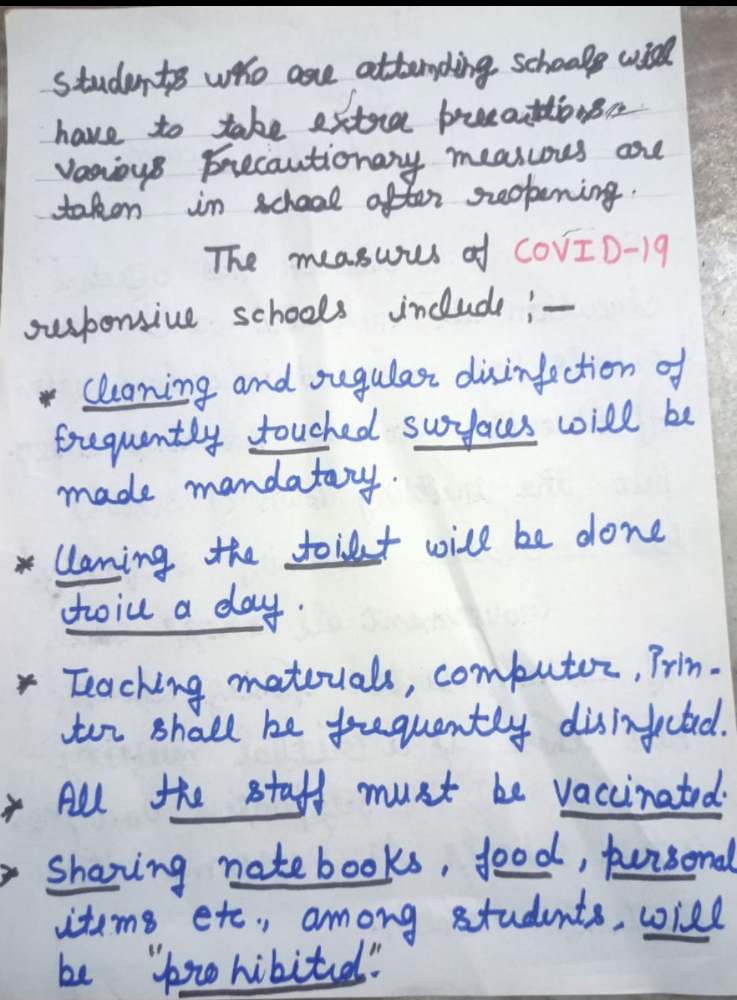 Students who are attending schools will
have to take extra precautions.
Various Precautionary measures are
taken in school after reopening.
The measures of COVID-19
responsive schools include :-
* Cleaning and regular disinfection of
frequently touched surfaces will be
made mandatary.
* Cleaning the toilet will be done
twice a day.
* Teaching materials, computer, Prin-
ter shall be frequently disinfected.
* All the staff must be vaccinated.
* Sharing notebooks, food, personal
items etc., among students, will
be "prohibited".